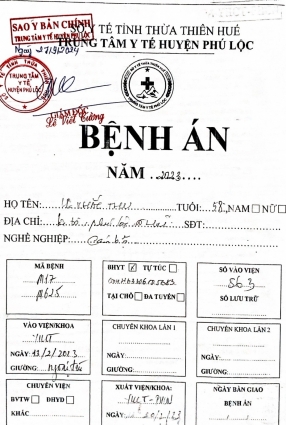 SỞ Y TẾ TỈNH THỪA THIÊN HUẾ
SAO Y BẢN CHÍNH
TRUNG TÂM Y TẾ HUYỆN PHÚ LỘC
TRUNG TÂM Y TẾ HUYỆN PHÚ LỘC
Ngày
TRUNG TÂM
Y TẾ
HUYỆN PHÚ LỘC
GIÁM ĐỐC
Lê Viết Cường
BỆNH ÁN
NĂM ...2023....
HỌ TÊN: TUỔI: 58 NAM NỮ
ĐỊA CHỈ: SĐT:
NGHỀ NGHIỆP:
MÃ BỆNH
M17
M625
BHYT TỰ TÚC
TẠI CHỖ ĐA TUYẾN
SỐ VÀO VIỆN
563
SỐ LƯU TRỮ
VÀO VIỆN/KHOA
NGÀY 13/2/2023
GIƯỜNG:
CHUYỂN KHOA LẦN 1
NGÀY:
GIƯỜNG:
CHUYỂN KHOA LẦN 2
NGÀY:
GIƯỜNG:
CHUYỂN VIỆN
BVTW ĐHYD
KHÁC
XUẤT VIỆN/KHOA:
YHCT-PHCN
NGÀY 20/2/23
NGÀY BÀN GIAO
BỆNH ÁN